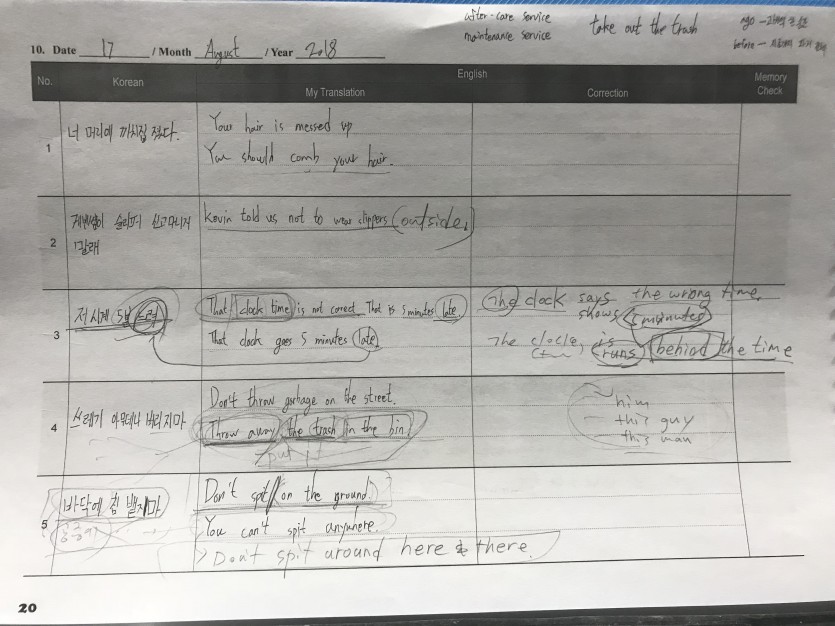 after-care service
maintenance service
take out the trash
ago
before
10. Date 17 / Month August / Year 2018
No.
Korean
English
My Translation
Correction
Memory Check
1
너 머리에 까치집 졌다.
Your hair is messed up
You should comb your hair.
2
말래
Kevin told us not to wear slippers (outside.
3
저 시계 5분 느려
That clock time is not correct. That is 5 minutes late.
That clock goes 5 minutes late
The clock says the wrong time.
shows 5 minutes
The clock is
runs behind the time
4
쓰레기 아무데나 버리지마
Don't throw garbage on the street.
Throw away the trash in the bin.
put
him
this guy
this man
5
바닥에 침 뱉지마
Don't spit on the ground.
You can't spit anywhere.
> Don't spit around here & there.
20